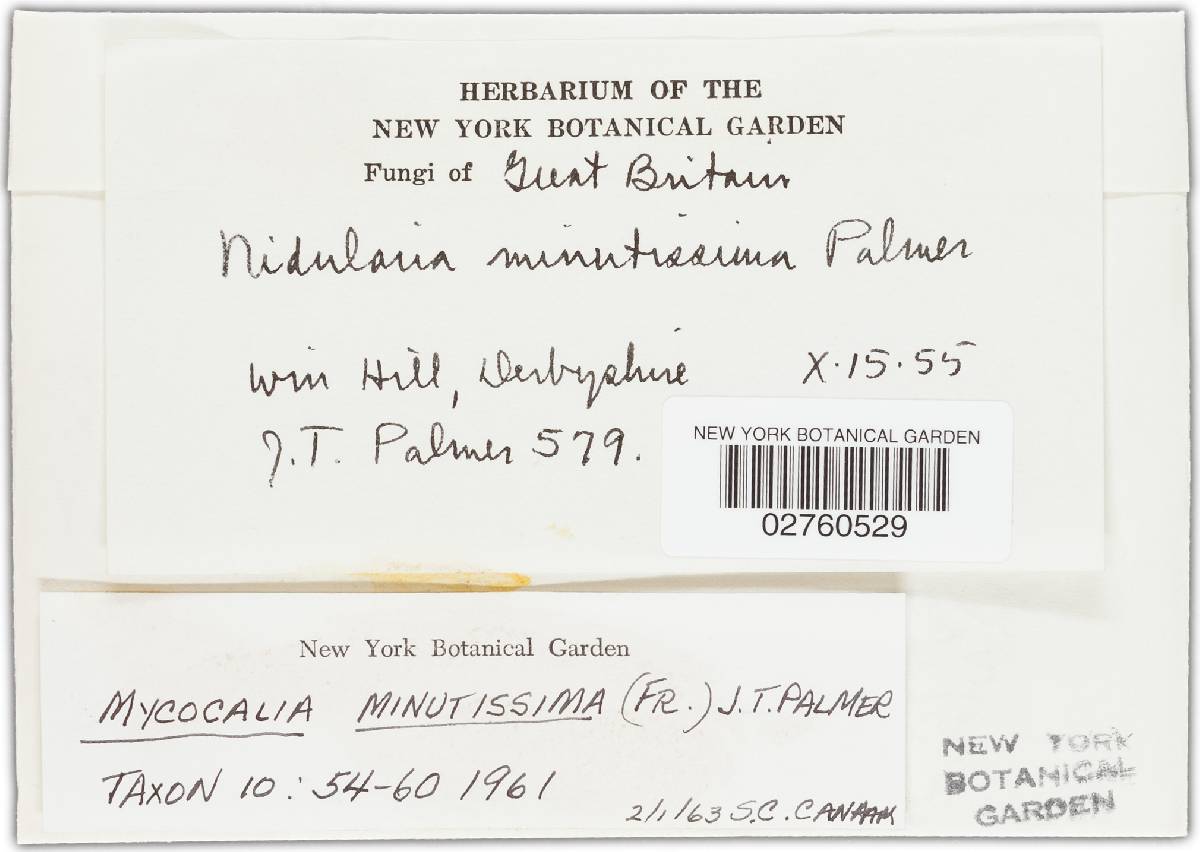 HERBARIUM OF THE
NEW YORK BOTANICAL GARDEN
Fungi of Great Britain
Nidularia minutissima Palmer
Win Hill, Derbyshire X·15·55
J.T. Palmer 579.
NEW YORK BOTANICAL GARDEN
02760529
New York Botanical Garden
MYCOCALIA MINUTISSIMA (FR.) J.T. PALMER
TAXON 10: 54-60 1961
2/1/63 S.C.
NEW YORK
BOTANICAL
GARDEN